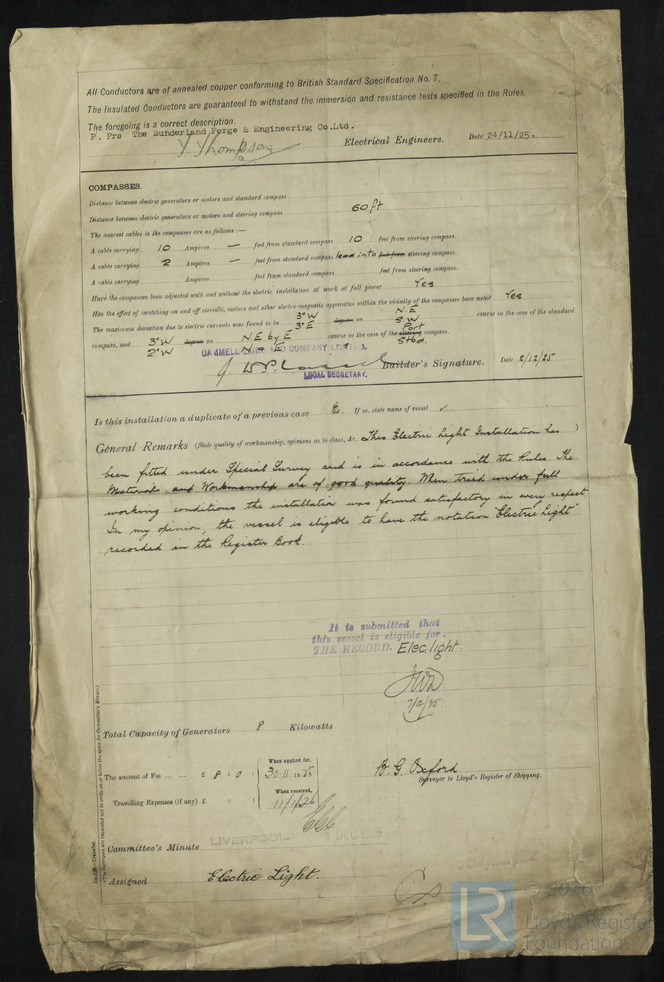 All Conductors are of annealed copper conforming to British Standard Specification No. 7.
The Insulated Conductors are guaranteed to withstand the immersion and resistance tests specified in the Rules.
The foregoing is a correct description.
P. Pro The Sunderland Forge & Engineering Co.Ltd.
Y Thompson Electrical Engineers. Date 24/11/25.
COMPASSES.
Distance between electric generators or motors and standard compass
Distance between electric generators or motors and steering compass 60 ft
The nearest cables to the compasses are as follows:—
A cable carrying 10 Ampères — feet from standard compass 10 feet from steering compass.
A cable carrying 2 Ampères — feet from standard compass lead into feet from steering compass.
A cable carrying Ampères feet from standard compass feet from steering compass.
Have the compasses been adjusted with and without the electric installation at work at full power Yes
Has the effect of switching on and off circuits, motors and other electro-magnetic apparatus within the vicinity of the compasses been noted Yes
The maximum deviation due to electric currents was found to be 3°W 3°E degrees on N.E S.W course in the case of the standard
compass, and 3°W 2°W degrees on N.E by E course in the case of the steering compass. Port Stbd.
CAMMELL LAIRD AND COMPANY LIMITED.
Builder's Signature. Date 2/12/25
LOCAL SECRETARY.
Is this installation a duplicate of a previous case No. If so, state name of vessel ✓
General Remarks (State quality of workmanship, opinions as to class, &c. This Electric Light Installation has )
been fitted under Special Survey and is in accordance with the Rules. The
Materials and Workmanship are of good quality. When tried under full
working conditions the installation was found satisfactory in every respect
In my opinion, the vessel is eligible to have the notation "Electric Light"
recorded in the Register Book.
It is submitted that
this vessel is eligible for
THE RECORD. Elec. light
7/12/25
Total Capacity of Generators 8 Kilowatts
The amount of Fee ... ... £ 8 : 0 : When applied for, 30.11.1925
B. G. Oxford
Surveyor to Lloyd's Register of Shipping.
Travelling Expenses (if any) £ : : When received, 11/1/26
LIVERPOOL DEC 1925
Committee's Minute
Assigned Electric Light.
LR © 2020
Lloyd's Register
Foundation